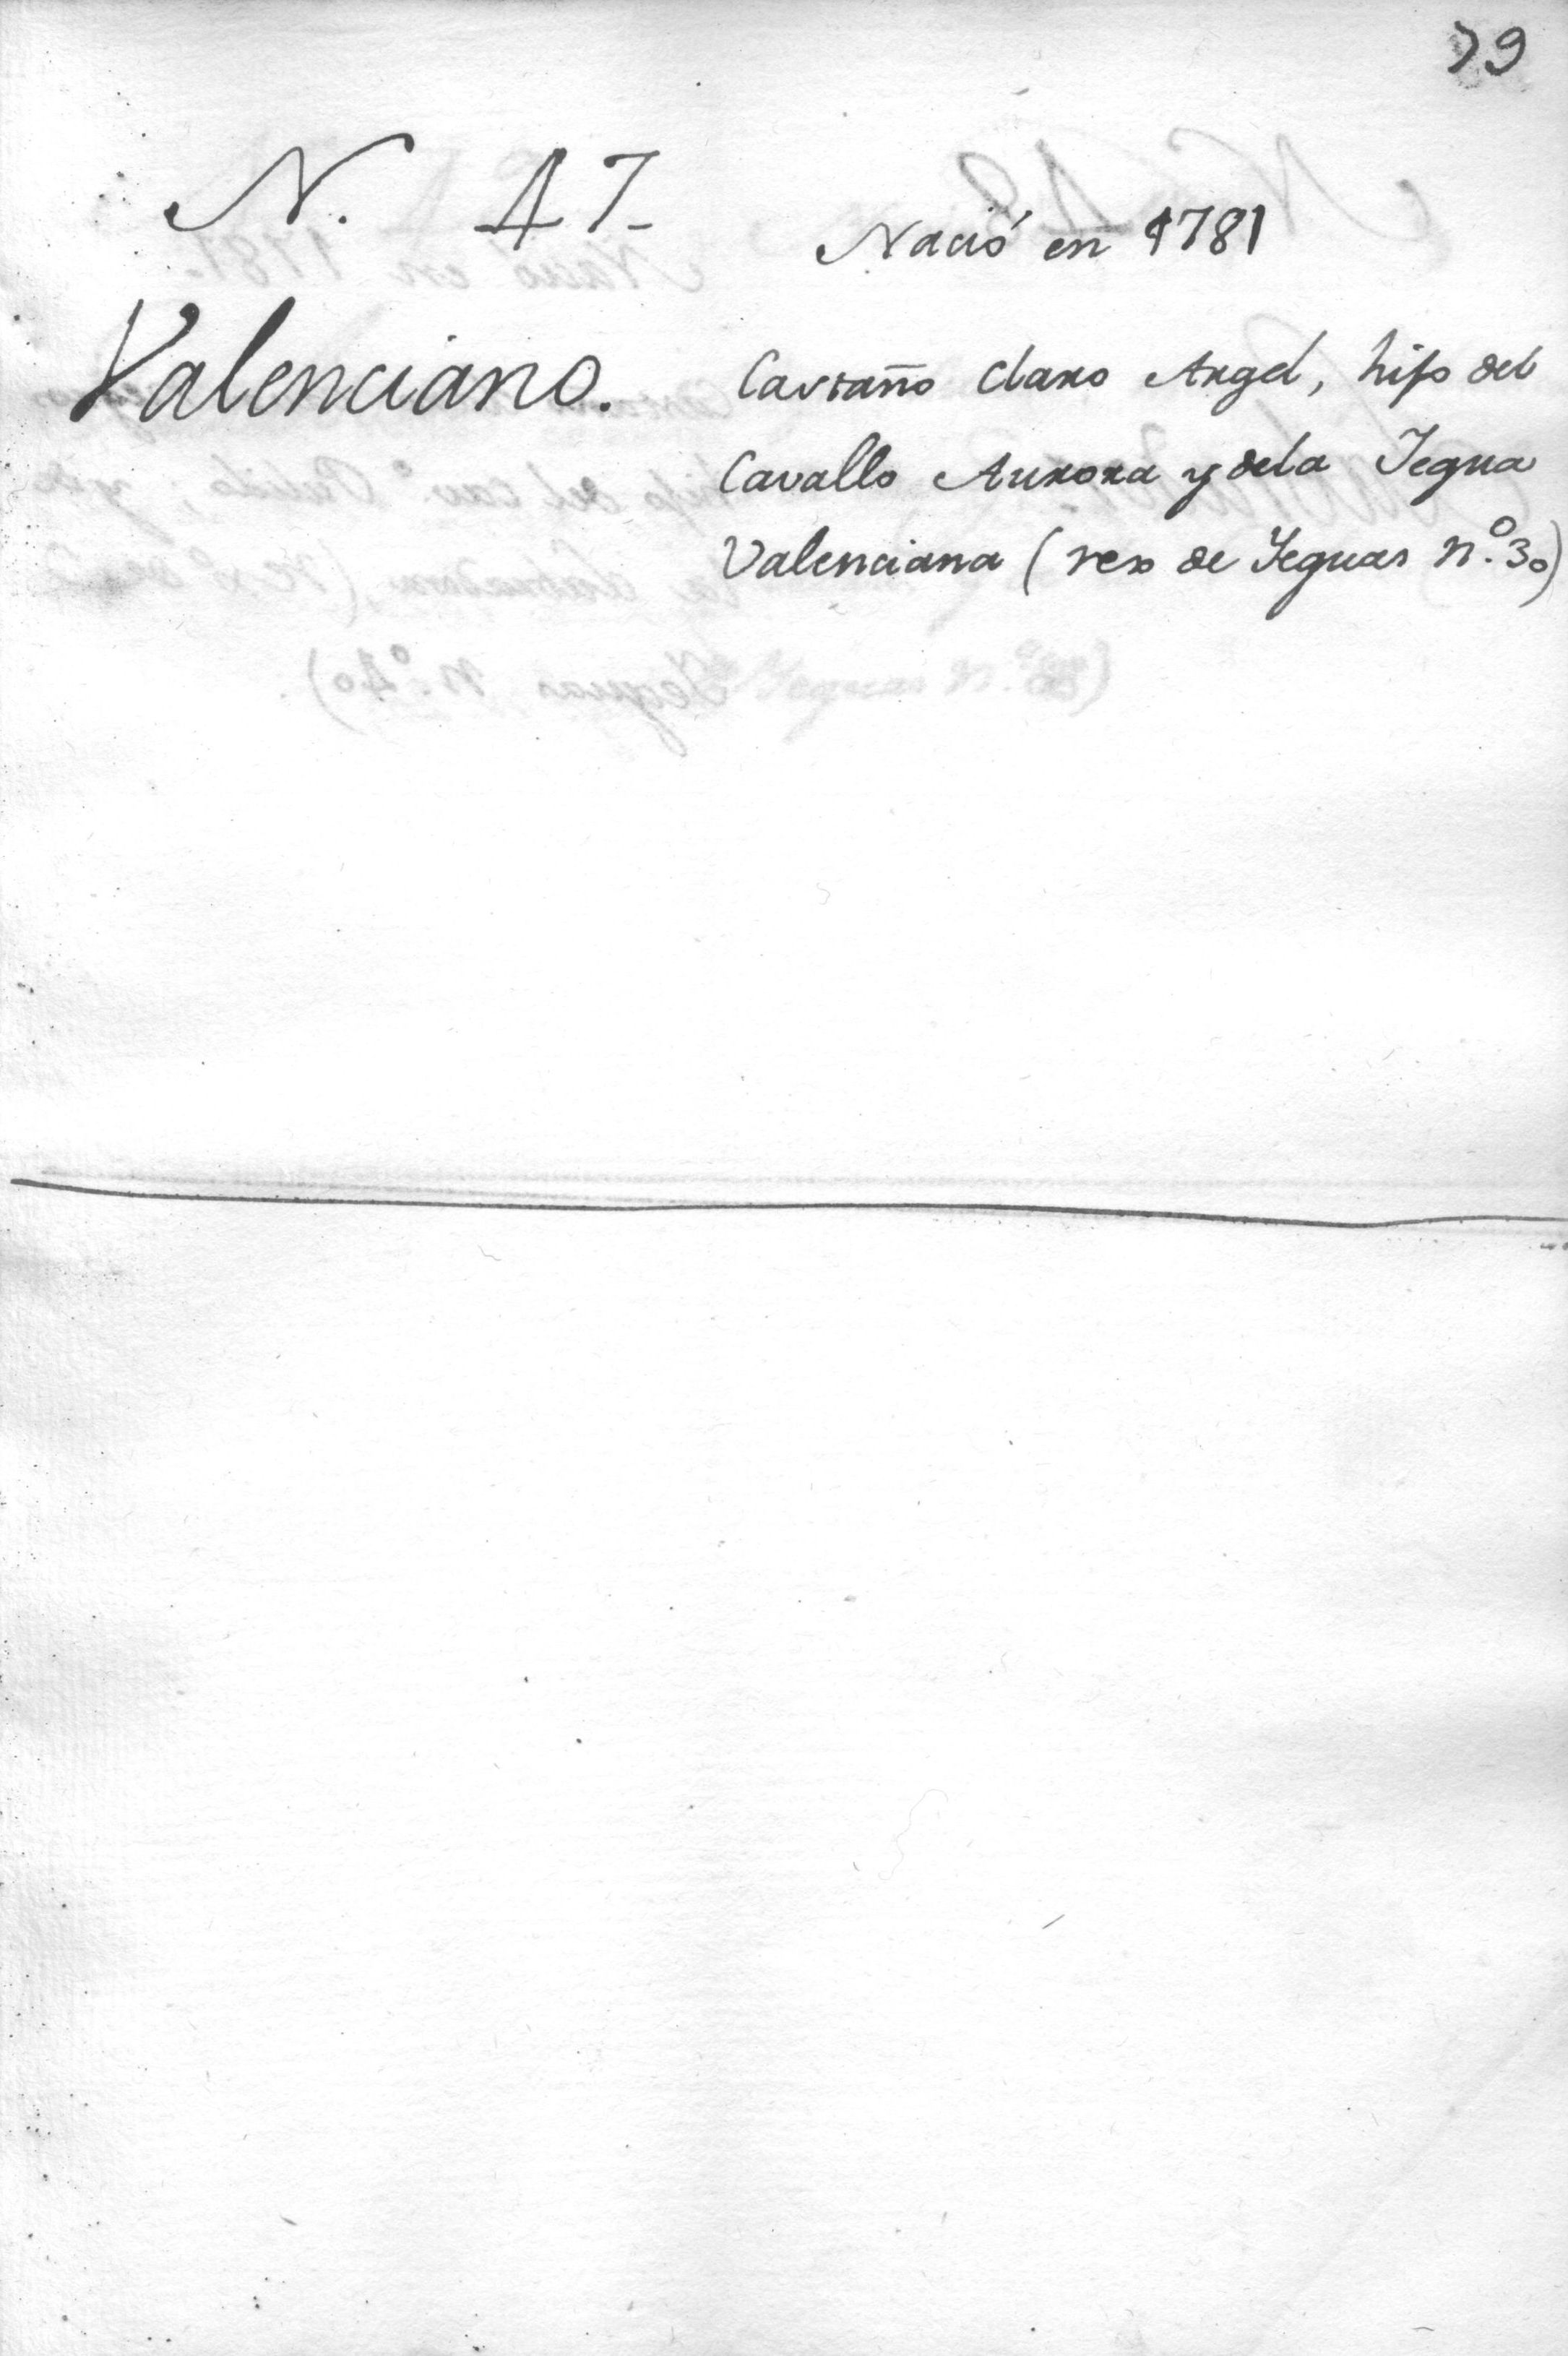 79
N. 47
Nació en 1781
Valenciano.
Castaño claro Argel, hijo del
Cavallo Aurora y dela Yegua
Valenciana (res de Yeguas n.º 30)